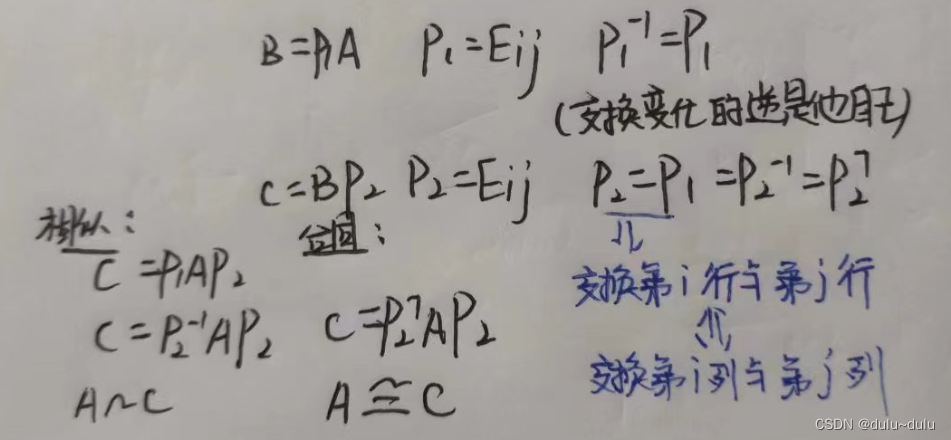 B=P₁A P₁=Eij P₁⁻¹=P₁
(交换变化的逆是他自己)
C=BP₂ P₂=Eij P₂=P₁=P₂⁻¹=P₂ᵀ
相似：
C=P₁AP₂
C=P₂⁻¹AP₂
A~C
合同：
C=P₂ᵀAP₂
A≅C
⇓
交换第i行与第j行
⇑
交换第i列与第j列
CSDN @dulu~dulu